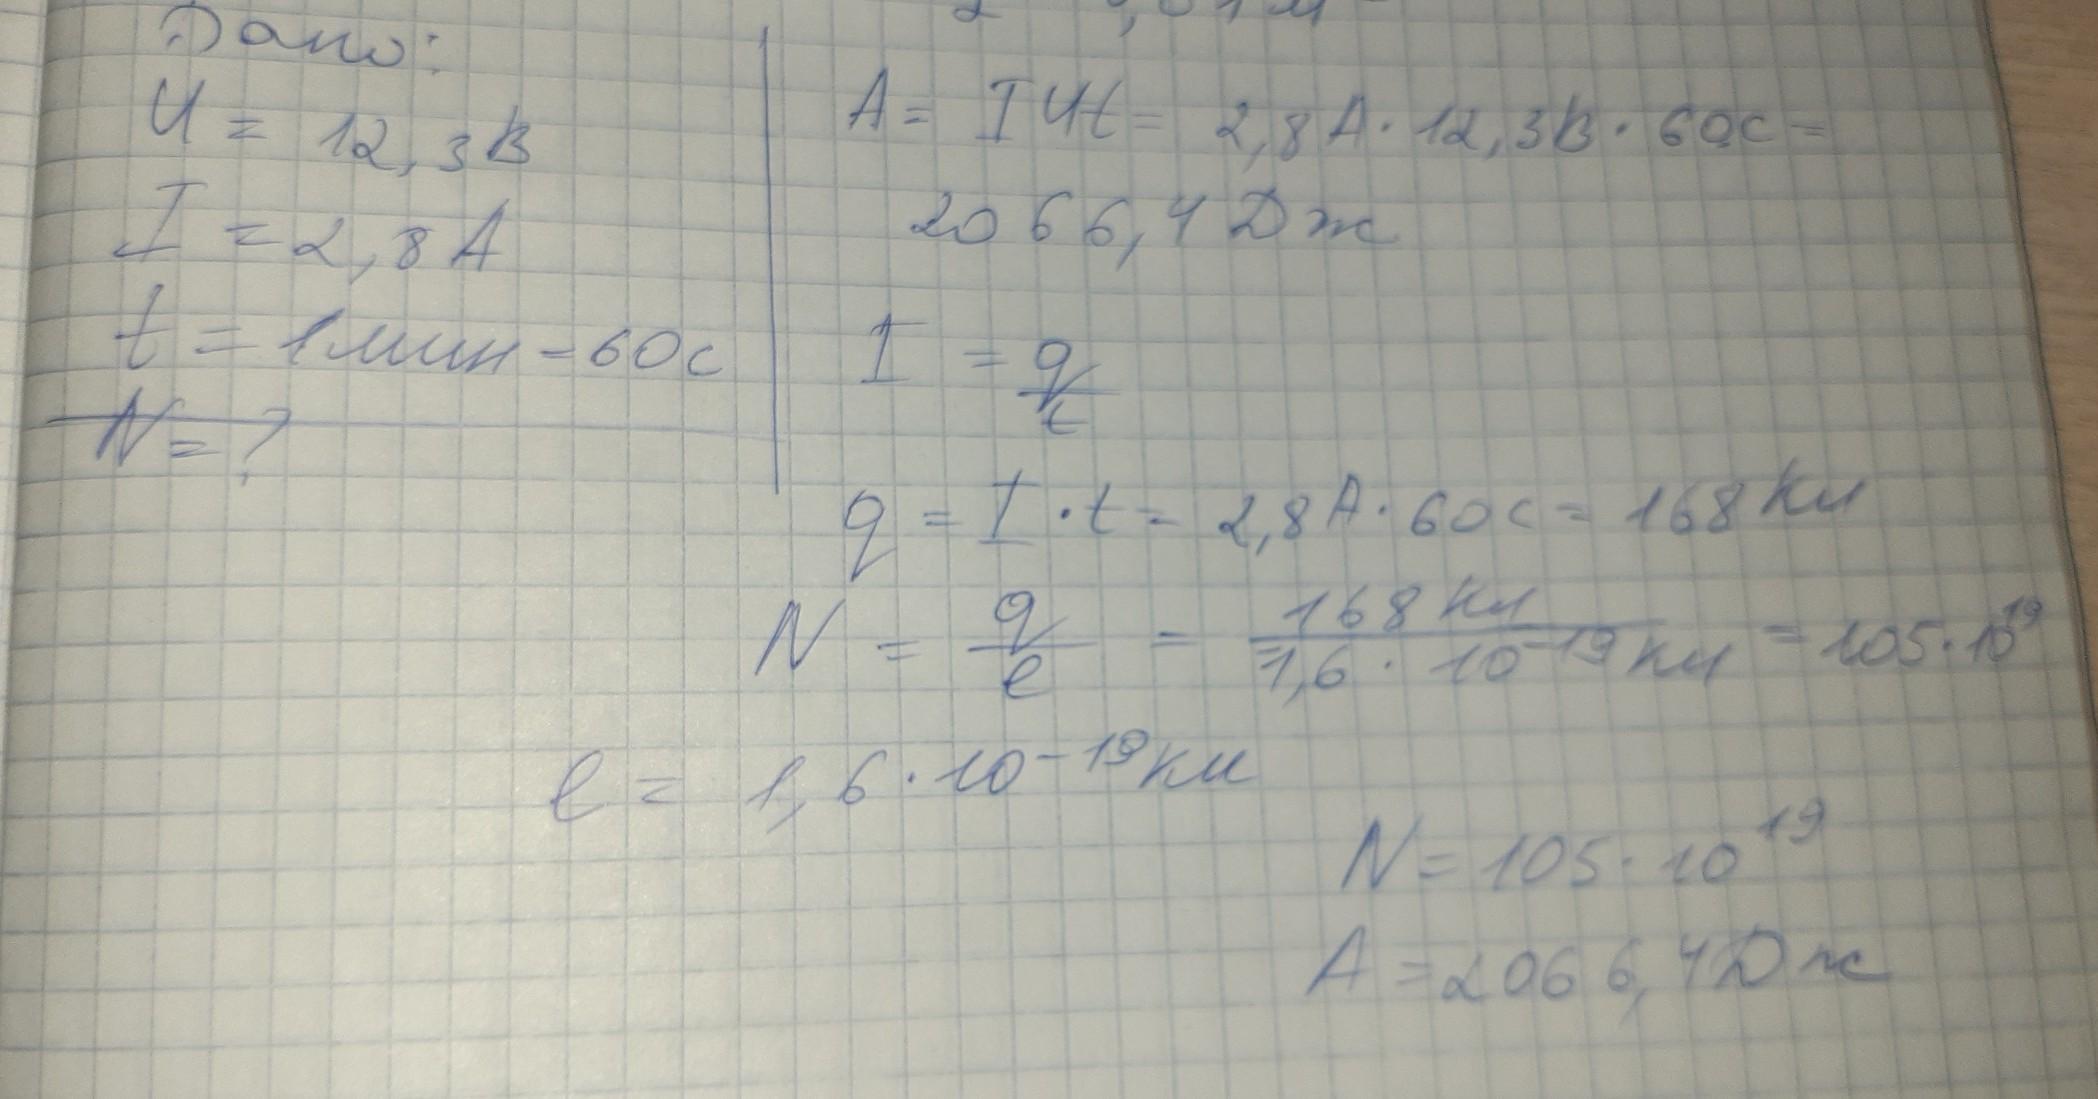 Дано:
U = 12,3В
I = 2,8А
t = 1мин - 60с
N = ?
A = IUt = 2,8А · 12,3В · 60с =
2066,4 Дж
I = q/t
q = I · t = 2,8А · 60с = 168 Кл
N = q/e = 168 Кл / 1,6 · 10⁻¹⁹ Кл = 105 · 10¹⁹
e = 1,6 · 10⁻¹⁹ Кл
N = 105 · 10¹⁹
A = 2066,4 Дж